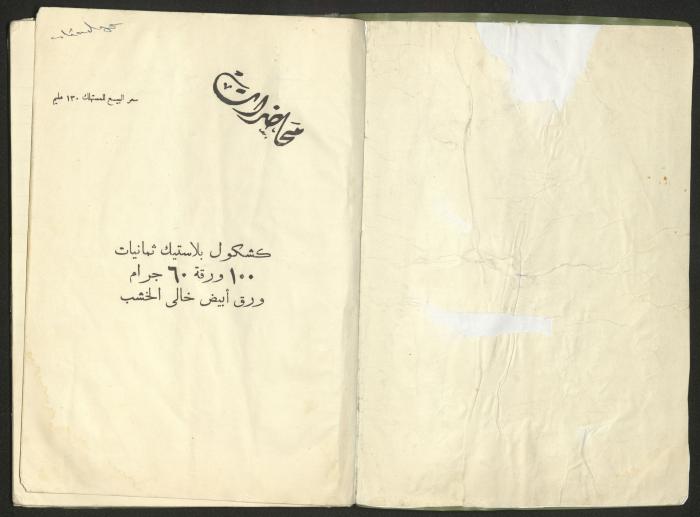 محاضرات
سعر البيع للمستهلك ١٣٠ مليم
كشكول بلاستيك ثمانيات
١٠٠ ورقة ٦٠ جرام
ورق أبيض خالى الخشب